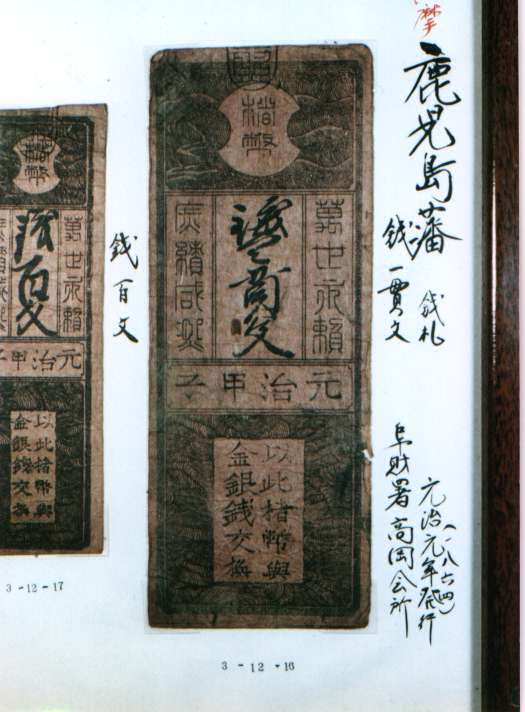 鹿児島藩 銭札
銭一貫文
元治元年(一八六四)発行
阜財署高岡会所
楮幣
萬世永頼
庶績咸熙
元治甲子
以此楮幣與
金銀銭交換
3-12-16
銭百文
楮幣
萬世永頼
庶績咸熙
銭百文
元治甲子
以此楮幣與
金銀錢交換
3-12-17